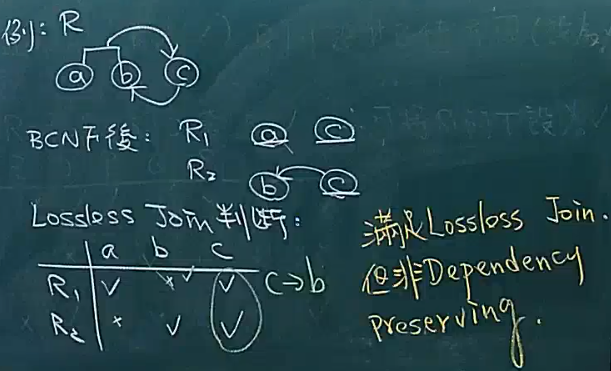 例: R
a b c
BCNF後: R₁ a c
R₂ b c
Lossless Join判断:
a b c
R₁ ✓ ×✓ ✓ c→b
R₂ × ✓ ✓
滿足Lossless Join.
但非Dependency
Preserving.